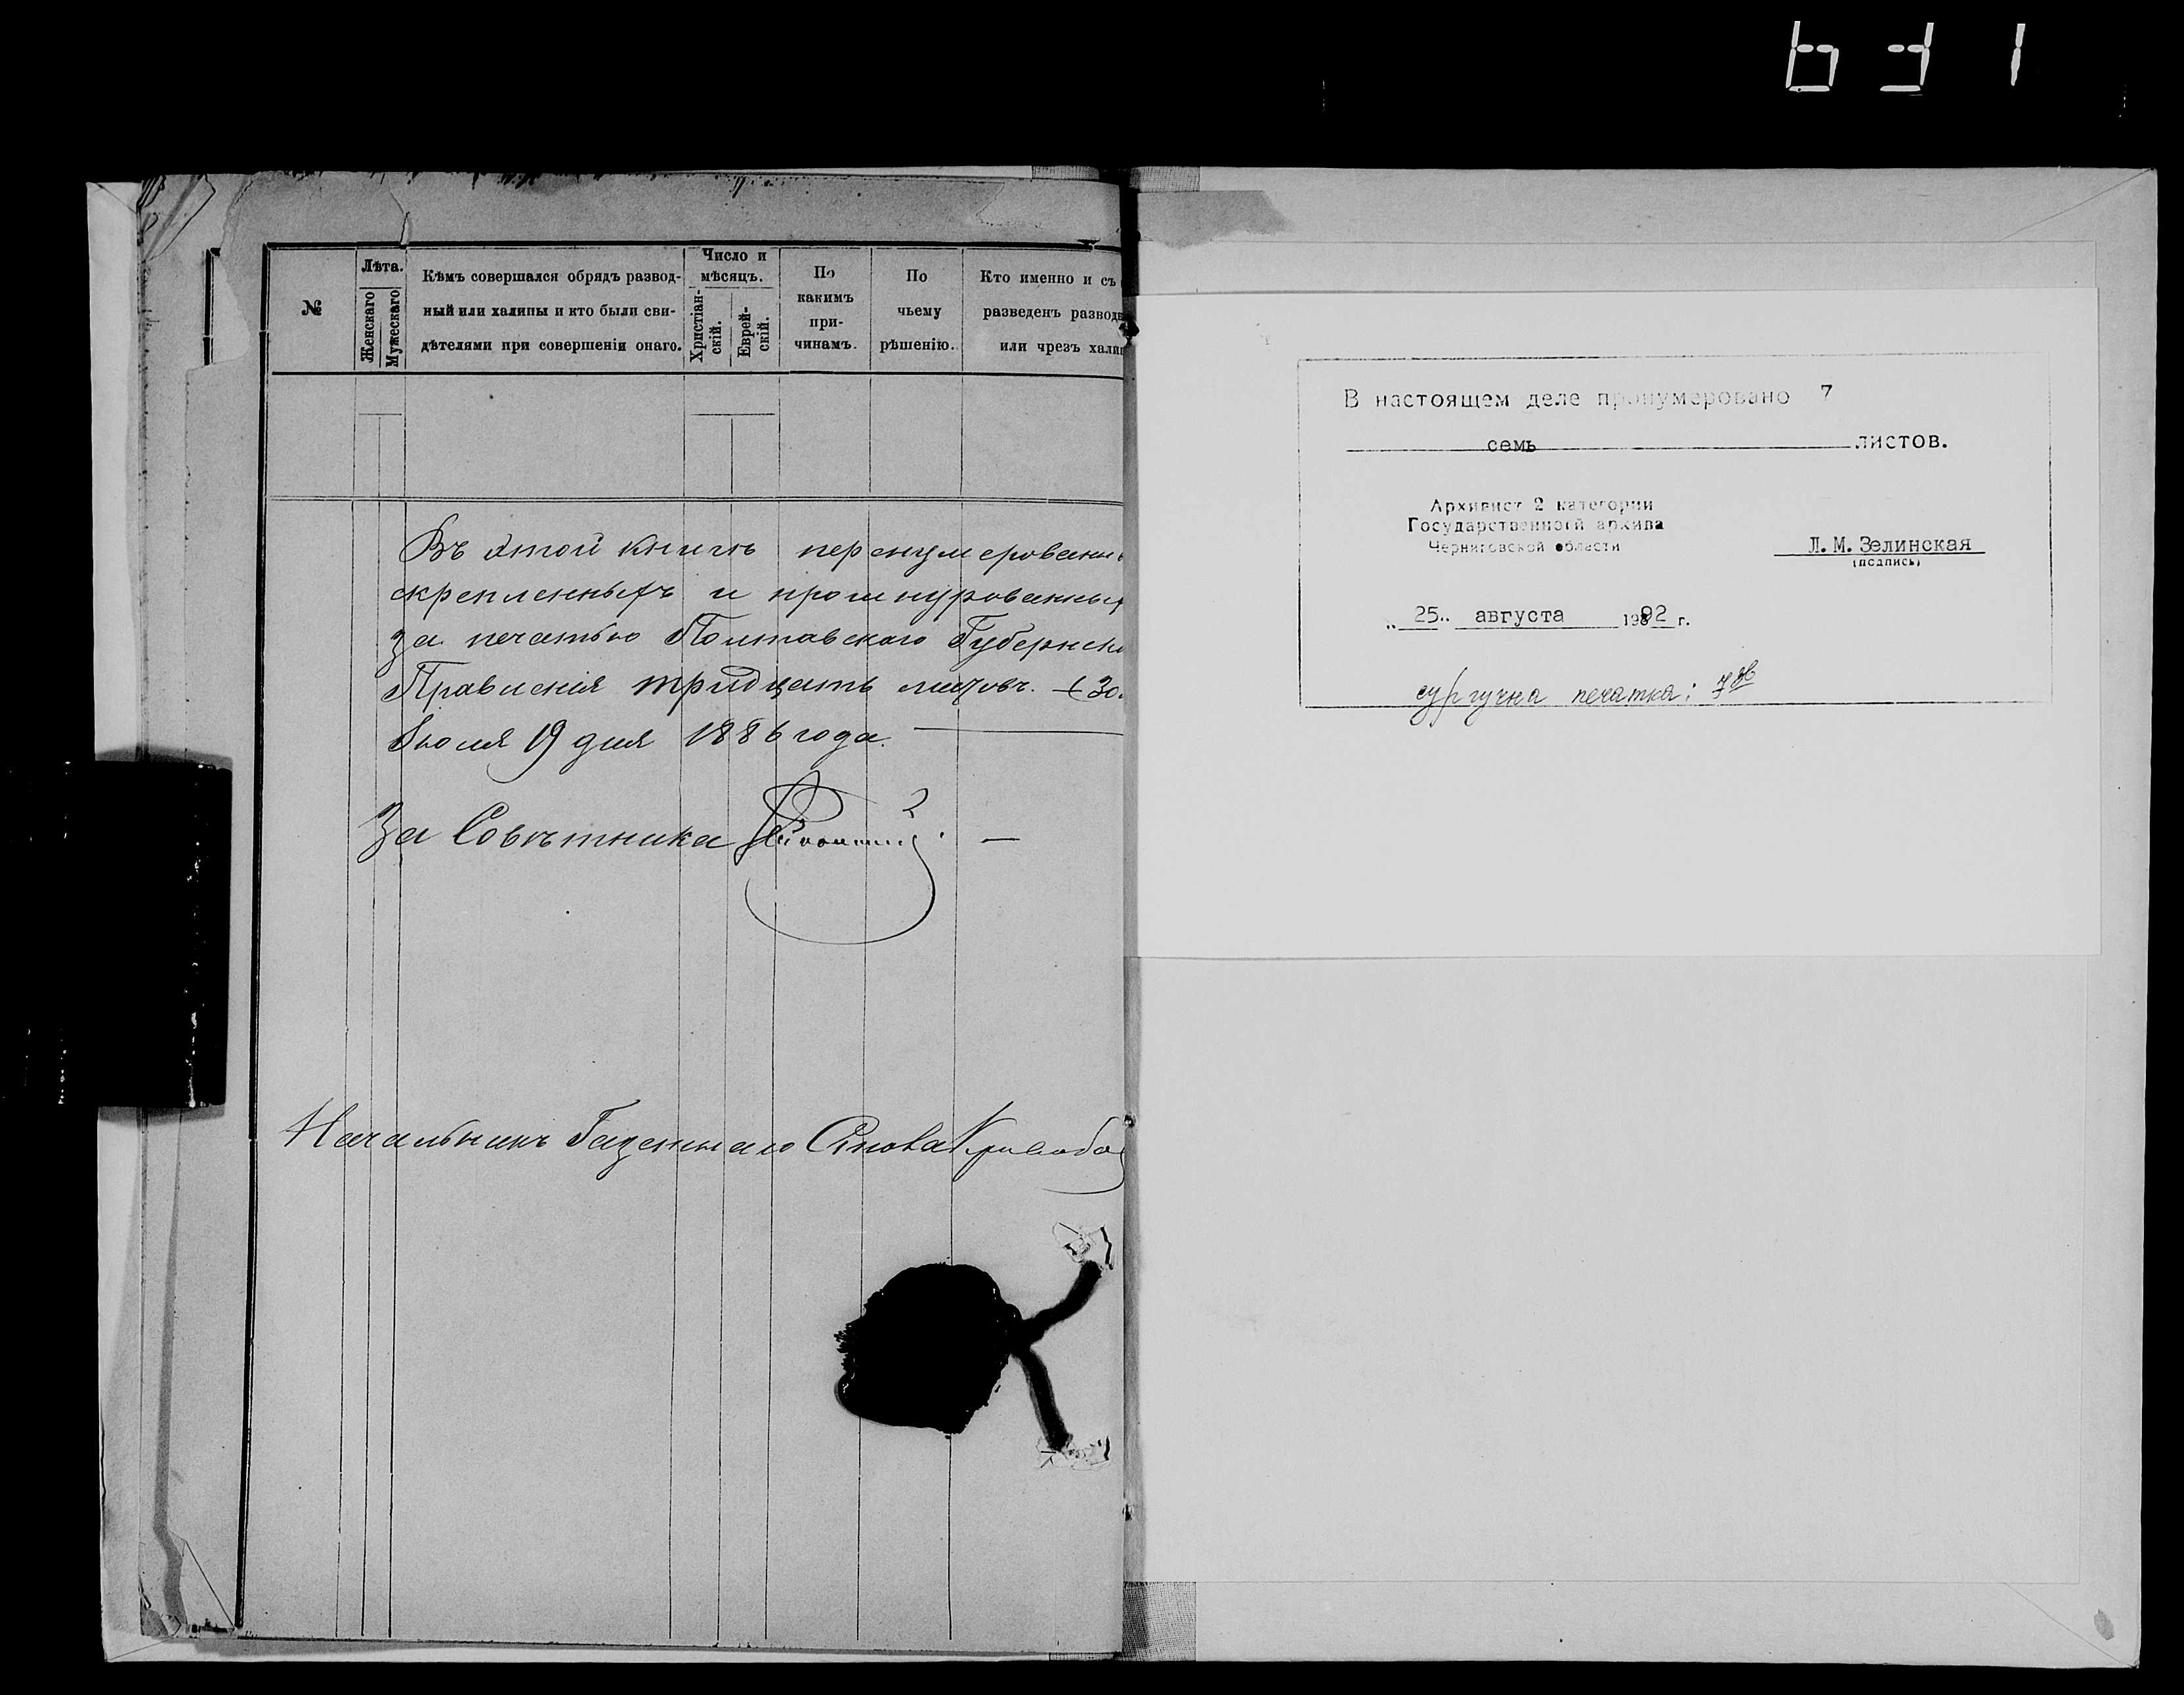 №
Лѣта.
Женскаго
Мужескаго
Кѣмъ совершался обрядъ развод-
ный или халицы и кто были сви-
дѣтелями при совершеніи онаго.
Число и
мѣсяцъ.
Христіан-
скій.
Еврей-
скій.
По
какимъ
при-
чинамъ.
По
чьему
рѣшенію.
Кто именно и съ
разведенъ развод
или чрезъ хали
Въ этой книгѣ перенумерованн
скрепленныхъ и прошнурованны
за печатью Полтавскаго Губернск
Правленія тридцать листовъ. (30.
Іюля 19 дня 1886 года.
За Совѣтника
Начальникъ
В настоящем деле пронумеровано 7
семь листов.
Архивист 2 категории
Государственной архива
Черниговской области
Л.М.Зелинская
(подпись)
„ 25 „ августа 1992 г.
сургучна печатка: 7зв